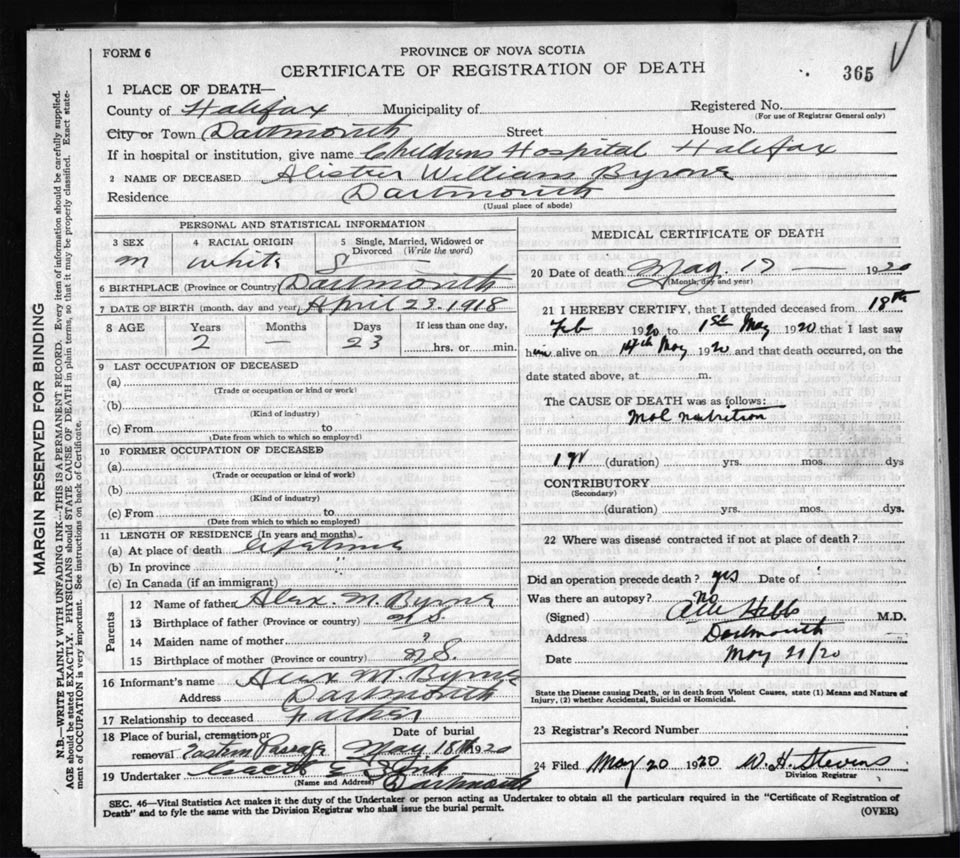 FORM 6
PROVINCE OF NOVA SCOTIA
CERTIFICATE OF REGISTRATION OF DEATH
365
1 PLACE OF DEATH—
County of Halifax Municipality of Registered No.
(For use of Registrar General only)
City or Town Dartmouth Street House No.
If in hospital or institution, give name Childrens Hospital Halifax
2 NAME OF DECEASED Alister William Byrne
Residence Dartmouth
(Usual place of abode)
PERSONAL AND STATISTICAL INFORMATION
3 SEX 4 RACIAL ORIGIN 5 Single, Married, Widowed or Divorced (Write the word)
m white S
6 BIRTHPLACE (Province or Country) Dartmouth
7 DATE OF BIRTH (month, day and year) April 23. 1918
8 AGE Years Months Days If less than one day,
2 — 23 hrs. or min.
9 LAST OCCUPATION OF DECEASED
(a)
(Trade or occupation or kind or work)
(b)
(Kind of industry)
(c) From to
(Date from which to which so employed)
10 FORMER OCCUPATION OF DECEASED
(a)
(Trade or occupation or kind of work)
(b)
(Kind of industry)
(c) From to
(Date from which to which so employed)
11 LENGTH OF RESIDENCE (In years and months)
(a) At place of death Lifetime
(b) In province "
(c) In Canada (if an immigrant)
Parents
12 Name of father Alex. M. Byrne
13 Birthplace of father (Province or country) N S.
14 Maiden name of mother ?
15 Birthplace of mother (Province or country) N S.
16 Informant's name Alex M. Byrne
Address Dartmouth
17 Relationship to deceased Father
18 Place of burial, cremation or removal Eastern Passage
Date of burial May 18th 1920
19 Undertaker
(Name and Address) Dartmouth
MEDICAL CERTIFICATE OF DEATH
20 Date of death May. 17 — 1920
(Month, day and year)
21 I HEREBY CERTIFY, that I attended deceased from 18th
Feb 1920 to 1st May 1920 that I last saw
him alive on 14th May 1920 and that death occurred, on the
date stated above, at m.
The CAUSE OF DEATH was as follows:
Mal nutrition
1 yr (duration) yrs. mos. dys
CONTRIBUTORY
(Secondary)
(duration) yrs. mos. dys.
22 Where was disease contracted if not at place of death?
Did an operation precede death? yes Date of
Was there an autopsy? no
(Signed) Hebb M.D.
Address Dartmouth
Date May 21/20
State the Disease causing Death, or in death from Violent Causes, state (1) Means and Nature of
Injury, (2) whether Accidental, Suicidal or Homicidal.
23 Registrar's Record Number
24 Filed May 20 1920 W. H. Stevens
Division Registrar
SEC. 46—Vital Statistics Act makes it the duty of the Undertaker or person acting as Undertaker to obtain all the particulars required in the "Certificate of Registration of
Death" and to fyle the same with the Division Registrar who shall issue the burial permit.
(OVER)
MARGIN RESERVED FOR BINDING
N.B.—WRITE PLAINLY WITH UNFADING INK—THIS IS A PERMANENT RECORD. Every item of information should be carefully supplied.
AGE should be stated EXACTLY. PHYSICIANS should STATE CAUSE OF DEATH in plain terms, so that it may be properly classified. Exact state-
ment of OCCUPATION is very important. See instructions on back of Certificate.